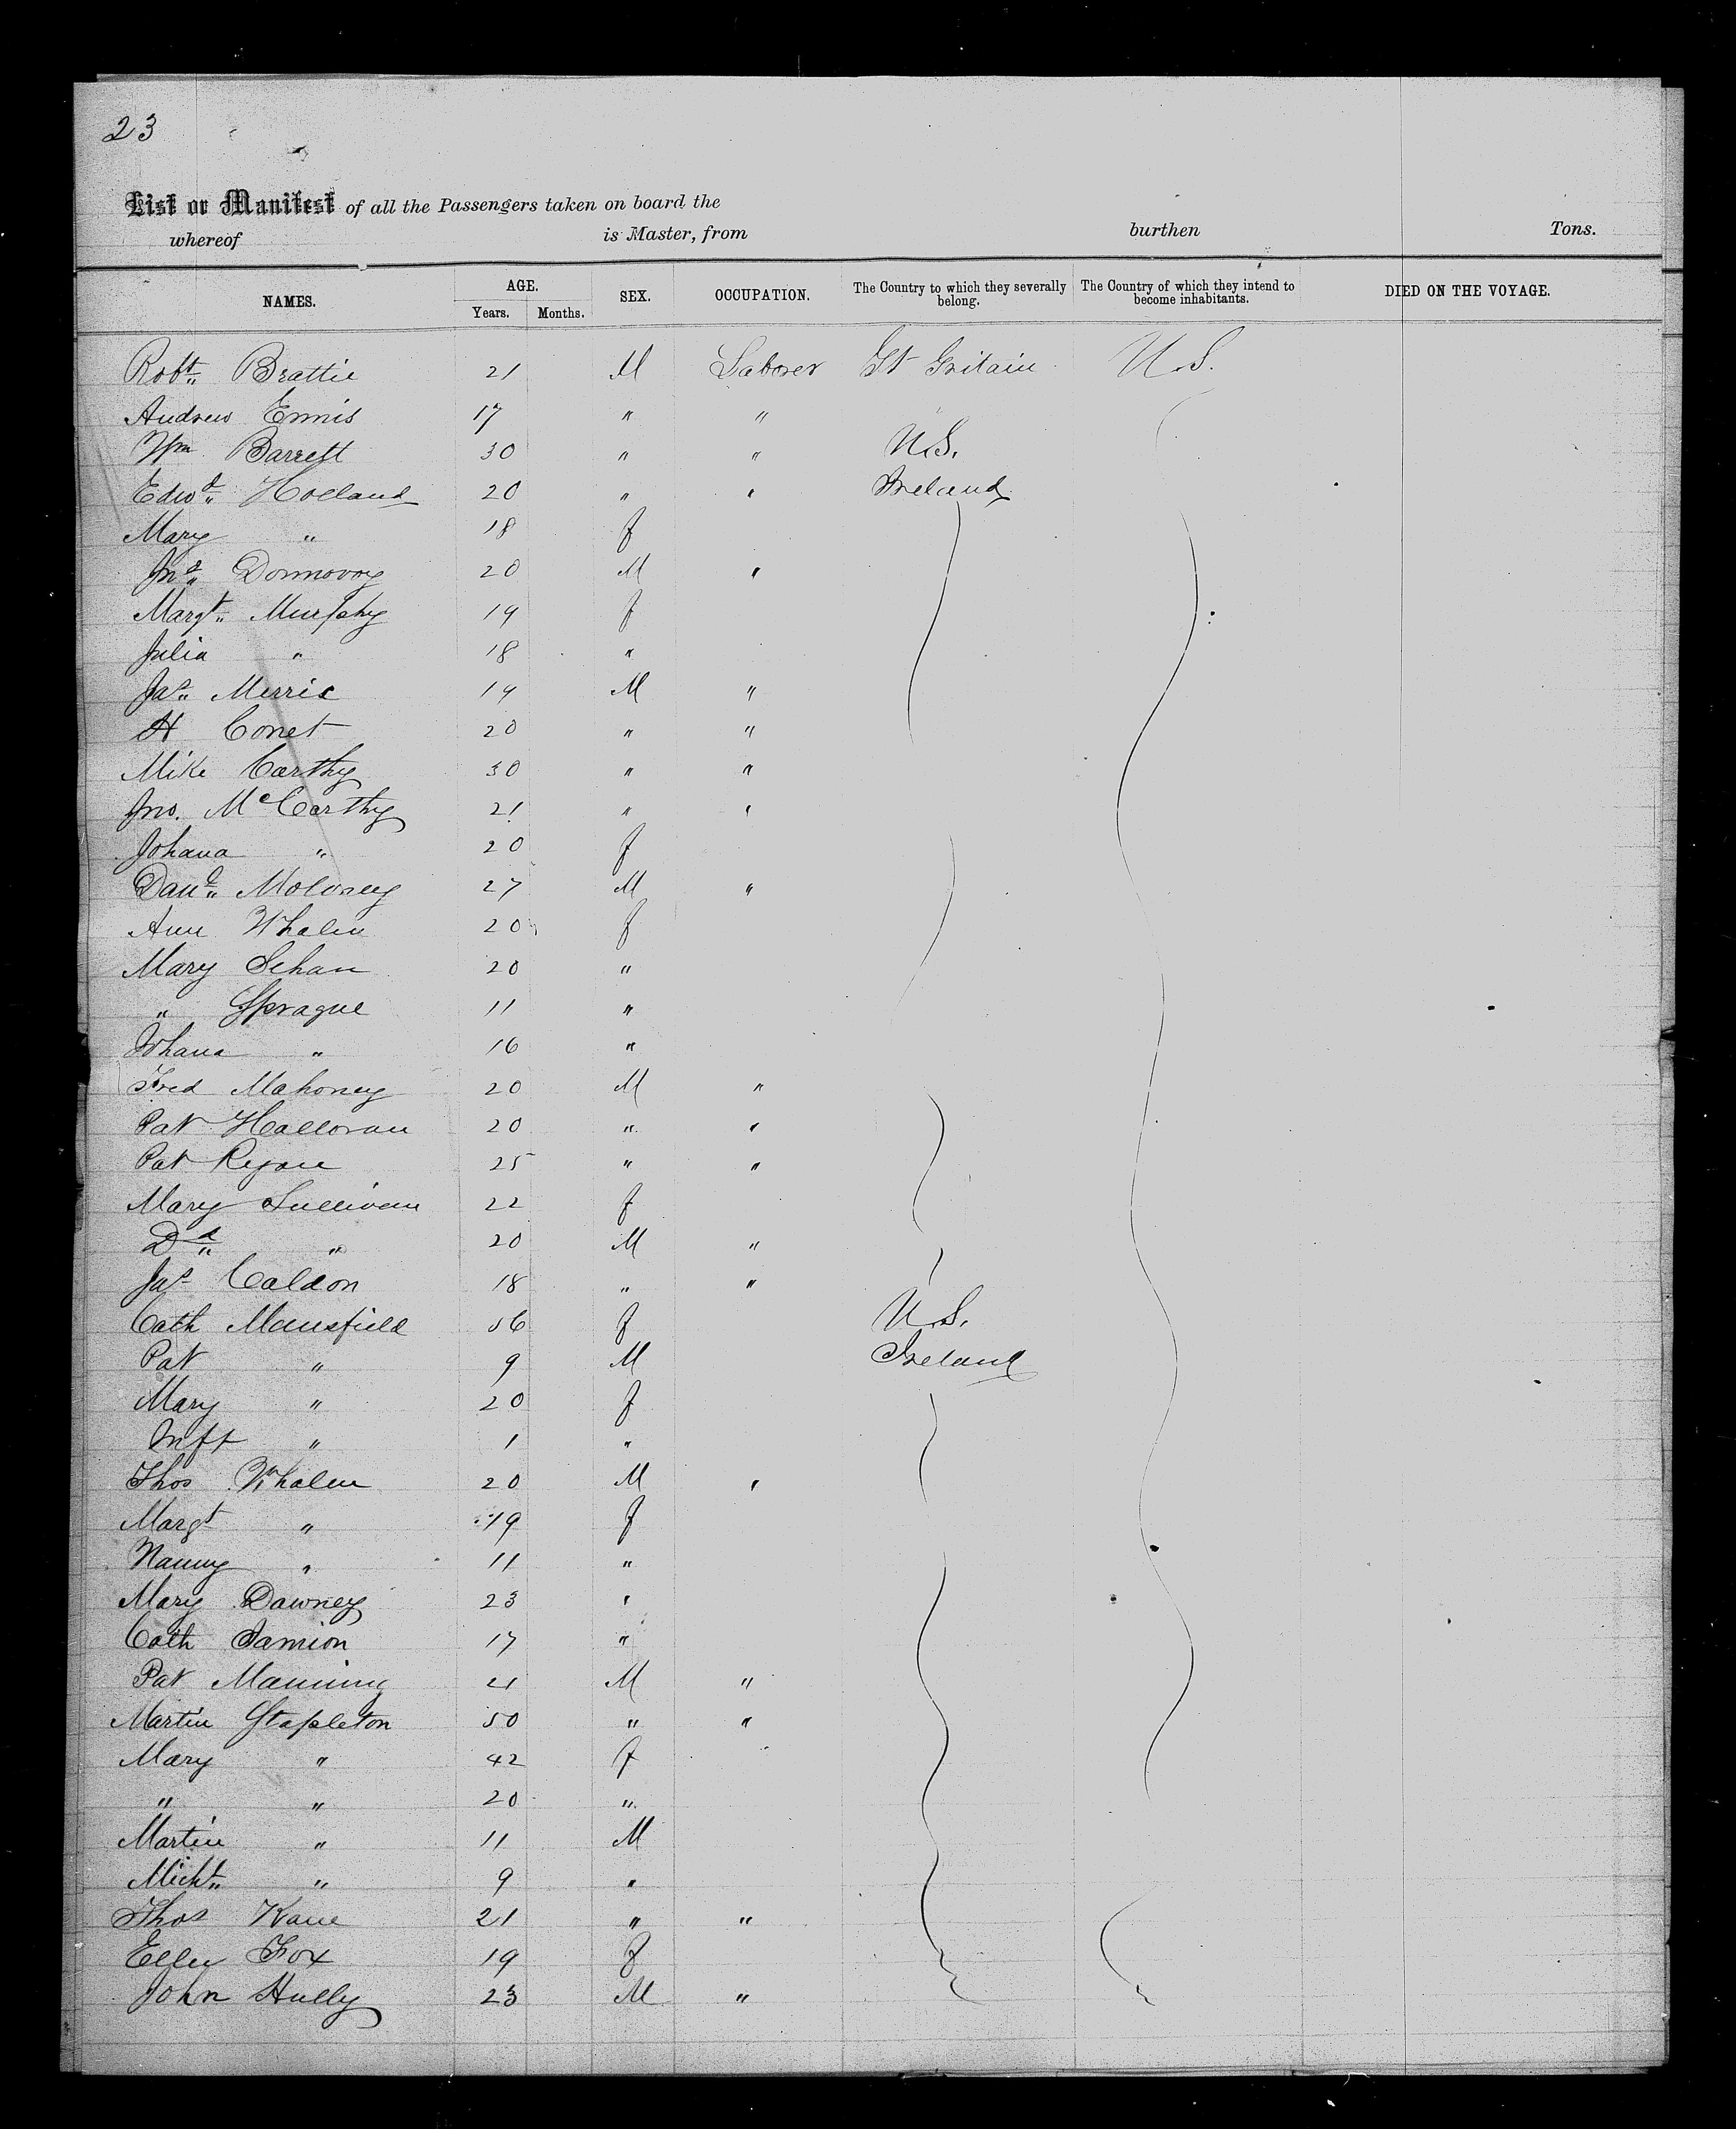 23
List or Manifest of all the Passengers taken on board the
whereof is Master, from burthen Tons.
NAMES. AGE. Years. Months. SEX. OCCUPATION. The Country to which they severally belong. The Country of which they intend to become inhabitants. DIED ON THE VOYAGE.
Robt. Brattie 21 M Laborer Gt Britain U.S.
Andrew Ennis 17 " "
Wm Barrett 30 " " U.S.
Edwd. Holland 20 " " Ireland
Mary " 18 f
Jno. Donnovoy 20 M "
Margt. Murphy 19 f
Julia " 18 "
Jas. Merric 19 M "
H Conet 20 " "
Mike Carthy 30 " "
Jno. McCarthy 21 " "
Johana " 20 f
Danl. Moloney 27 M "
Ann Whalen 20 f
Mary Sehan 20 "
" Sprague 11 "
Johana " 16 "
Fred Mahoney 20 M "
Pat Halloran 20 " "
Pat Regan 25 " "
Mary Sullivan 22 f
Dd " 20 M "
Jas Caldon 18 " "
Cath Mansfield 56 f U.S.
Pat " 9 M Ireland
Mary " 20 f
Inft " 1 "
Thos Whalen 20 M "
Margt " 19 f
Nanny " 11 "
Mary Dawney 23 "
Cath 17 "
Pat Manning 21 M "
Martin Stapleton 50 " "
Mary " 42 f
" " 20 "
Martin " 11 M
Michl. " 9 "
Thos Kane 21 " "
Ellen Fox 19 f
John Hully 23 M "